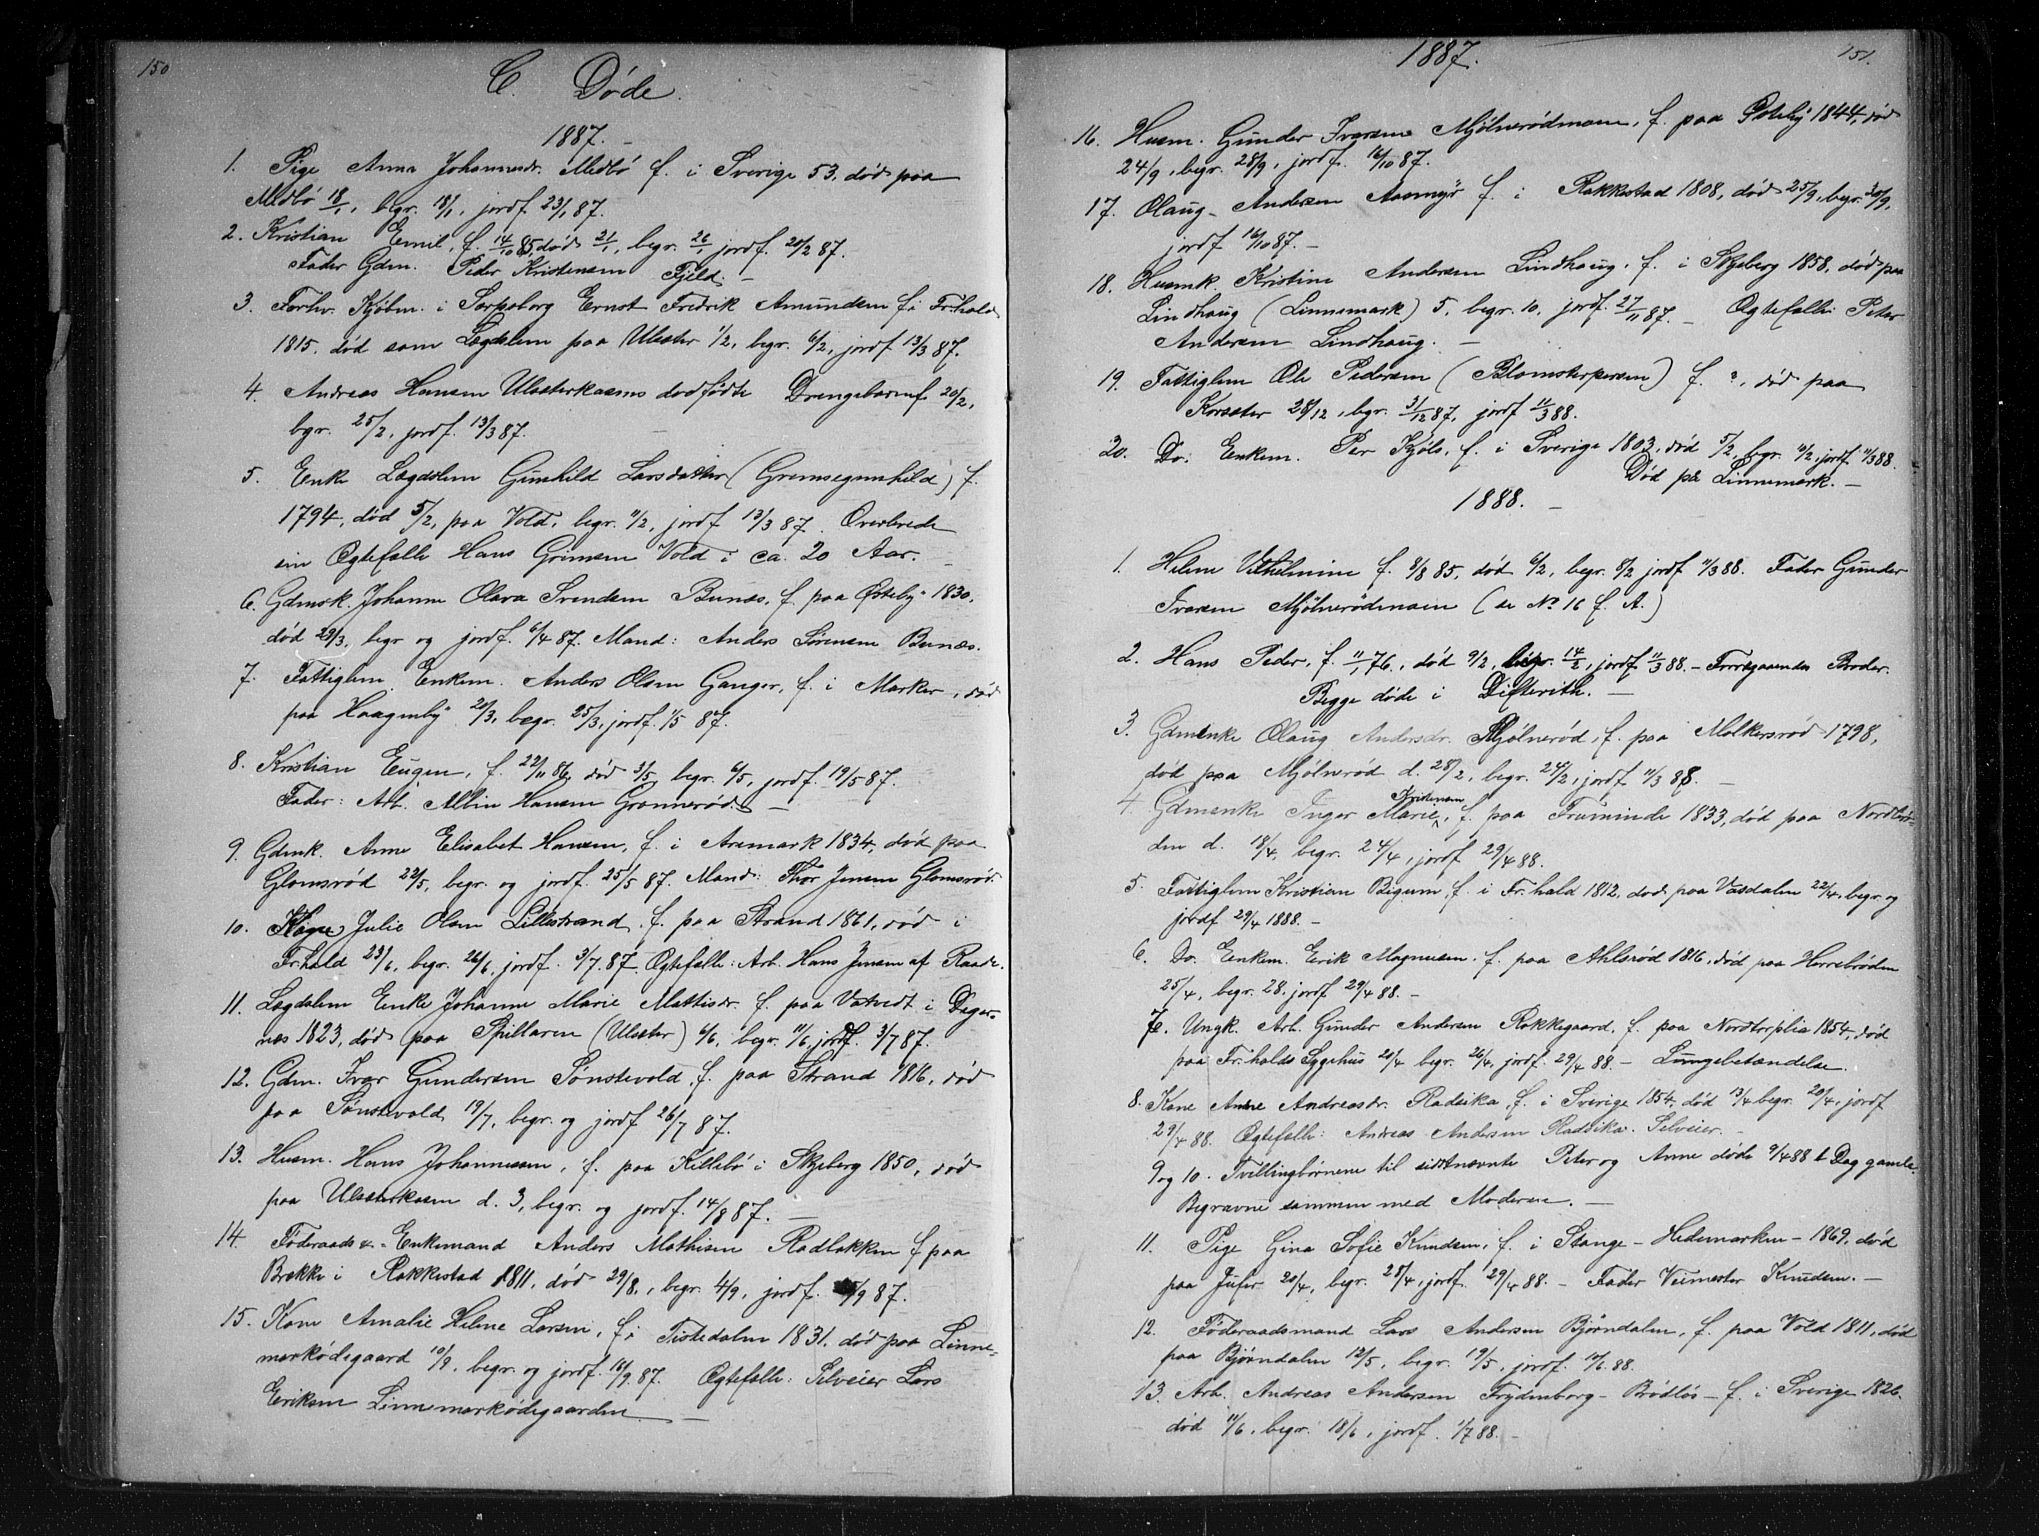 150
C. Døde.
1887. –
1. Pige Anna Johannesdr. Medbö f. i Sverige 53, død paa
Medbö 18/1, begr. 18/1, jordf. 23/1 87.
2. Kristian Emil, f. 14/10 85, død 21/1, begr. 26/1 jordf. 20/2 87.
Fader Gdm. Peder Kristensen Fjeld. –
3. Forhv. Kjøbm. i Sarpsborg Ernst Fredrik Amundsen f. i Fr.hald
1815, død som Lægdslem paa Ulsæter 1/2, begr. 6/2, jordf 13/3 87.
4. Andreas Hansen Ulsæterkasens dødfødte Drengebarn f. 20/2,
begr. 25/2, jordf. 13/3 87.
5. Enke Lægdslem Gunhild Larsdatter (Grimsegunhild) f.
1794, død 5/2, paa Vold, begr. 11/2, jordf 13/3 87. Overlevede
sin Ægtefælle Hans Grimsen Vold i ca. 20 Aar. –
6. Gdmsk. Johanne Olava Svendsen Bunæs, f. paa Østeby 1830,
død 29/3, begr og jordf. 6/4 87. Mand: Anders Sørensen Bunæs.
7. Fattiglem Enkem. Anders Olsen Ganger, f. i Marker, død
paa Haagenby 20/3, begr. 25/3, jordf. 1/5 87.
8. Kristian Eugen, f. 22/11 86, død 3/5, begr. 6/5, jordf. 19/5 87.
Fader: Arb. Albin Hansen Grønnerød. –
9. Gdmk. Anne Elisabet Hansen, f. i Aremark 1834, død paa
Glomsrød 22/5, begr. og jordf. 25/5 87. Mand: Thor Jensen Glomsrød.
10. Kone Julie Olsen Lillestrand, f. paa Strand 1861, død i
Fr.hald 23/6, begr. 26/6, jordf. 3/7 87, Ægtefælle: Arb. Hans Jensen af Raade.
11. Lægdslem Enke Johanne Marie Mattisdr. f. paa Vatvedt i Deger-
næs 1823, død paa Spillaren (Ulsæter) 6/6, begr. 11/6, jordf. 3/7 87.
12. Gdm. Ivar Gundersen Sønstevold, f. paa Strand 1816, død
paa Sønstevold, 19/7, begr. og jordf 26/7 87.
13. Husm. Hans Johannessen, f. paa Killebö i Skjeberg 1850, død
paa Ulsæterkasen d. 3, begr. og jordf. 14/8 87. –
14. Føderaads &. – Enkemand Anders Mathisen Rødbakken f paa
Brække i Rakkestad 1811, død 29/8, begr. 4/9, jordf. /9 87.
15. Kone Amalie Helene Larsen, f. i Tistedalen 1831, død paa Linne-
markødegaard 10/9, begr. og jordf. 16/9 87. Ægtefælle: Selveier Lars
Eriksen Linnemarkødegaarden. –
1887.
151.
16. Husm. Gunder Iversen Mjölnerødmoen, f. paa Östeby 1844, død
24/9, begr. 28/9, jordf. 16/10 87.
17. Olaug Andersen Aasmyr f. i Rakkestad 1808, død 25/9, begr. 30/9,
jordf 16/10 87. –
18. Husmk. Kristine Andersen Lindhaug, f. i Skjeberg 1858, død paa
Lindhaug (Linnemark) 5, begr. 10, jordf. 27/11 87. – Ægtefælle: Peter
Andersen Lindhaug. –
19. Fattiglem Ole Pedersen (Blomsterpersen) f. ?, død paa
Korsæter 28/12, begr. 31/12 87, jordf 11/3 88.
20. Do. Enkem. Per Kjöls, f. i Sverige 1803, død 5/2, begr. 11/2, jordf 11/3 88.
Død paa Linnemark. –
1888. –
1. Helene Vilhelmine f. 3/8 85, død 6/2, begr. 8/2 jordf 11/3 88. Fader Gunder
Iversen Mjölnerödmoen (se No 16 f. A.)
2. Hans Peder, f. 11/1 76, død 9/2, begr. 14/2, jordf 11/3 88. – Foregaaendes Broder.
Begge døde i Difterith. –
3. Gdmenke Olaug Andersdr. Mjölnerød, f. paa Melkersrød 1798,
død paa Mjölnerød d. 28/2, begr. 24/2, jordf 11/3 88. –
4. Gdmenke Inger Marie Kristensen, f. paa Fruminde 1833, død paa Nordbrö-
den d. 18/4, begr. 24/4, jordf 29/4 88.
5. Fattiglem Kristian Bigum, f. i Fr.hald 1812, død paa Vasdalen 22/4, begr. og
jordf 29/4 1888. –
6. Do. Enkem. Erik Magnusen, f. paa Ahlsrød 1816, død paa Herrebrøden
25/4, begr. 28, jordf 29/4 88. –
7. Ungk. Arb. Gunder Andersen Rokkegaard, f. paa Nordtorplia 1854, død
paa Fr.halds Sygehus 20/4 begr. 26/4, jordf. 29/4 88. – Lungebetændelse.
8. Kone Anne Andreasdr. Rødsika, f. i Sverige 1854, død 13/4 begr. 20/4, jordf
29/4 88. Ægtefælle: Andreas Andersen Rødsika. Selveier. –
9 og 10. Tvillingbørnene til sidstnævnte Peter og Anne døde 9/4 88 1 Dag gamle.
Begravne sammen med Moderen. –
11. Pige Gina Sofie Knudsen, f. i Stange – Hedemarken – 1869, død
paa Jufer 20/4, begr. 28/4, jordf. 29/4 88. – Fader Veimester Knudsen. –
12. Føderaadsmand Lars Andersen Bjørndalen, f. paa Vold 1811, død
paa Bjørndalen 12/5, begr. 19/5, jordf. 10/6 88.
13. Arb. Andreas Andersen Frydenborg – Brödløs – f. i Sverige 1826,
død 11/6, begr. 18/6, jordf. 1/7 88. –